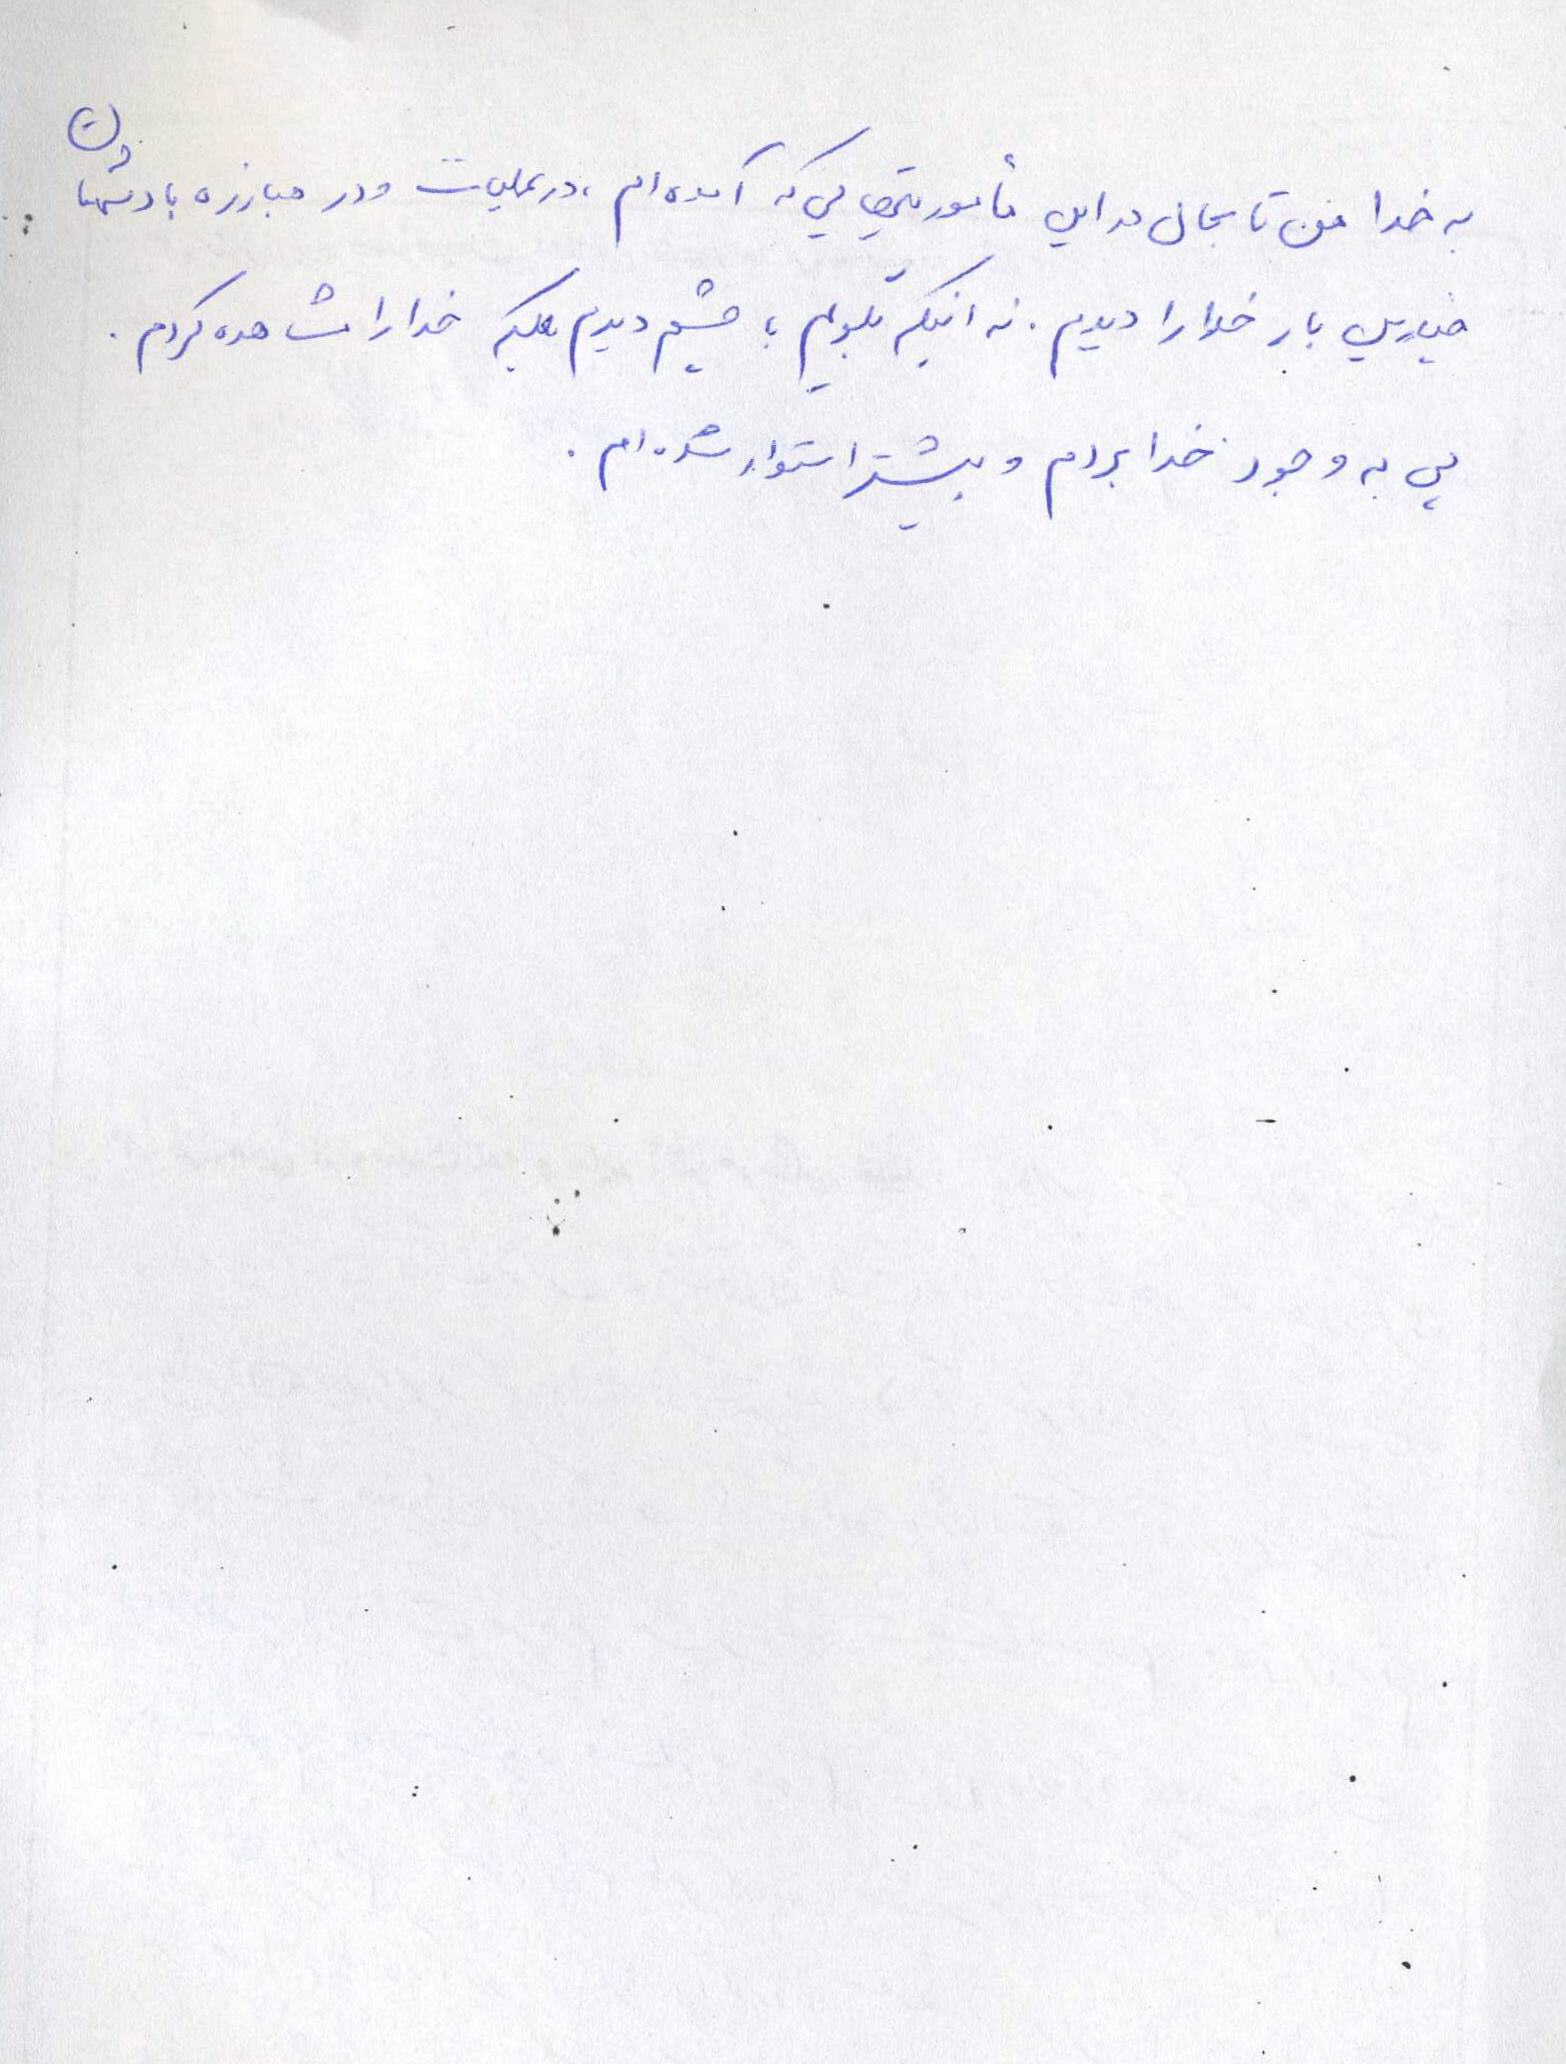 به خدا من تا بحال در این مأموریتهایی که آمده ام ، در عملیات و در مبارزه با دشمنان
چندین بار خدا را دیدم . نه اینکه بگویم با چشم دیدم بلکه خدا را مشاهده کردم .
پی به وجود خدا بردم و بیشتر استوار شده ام .